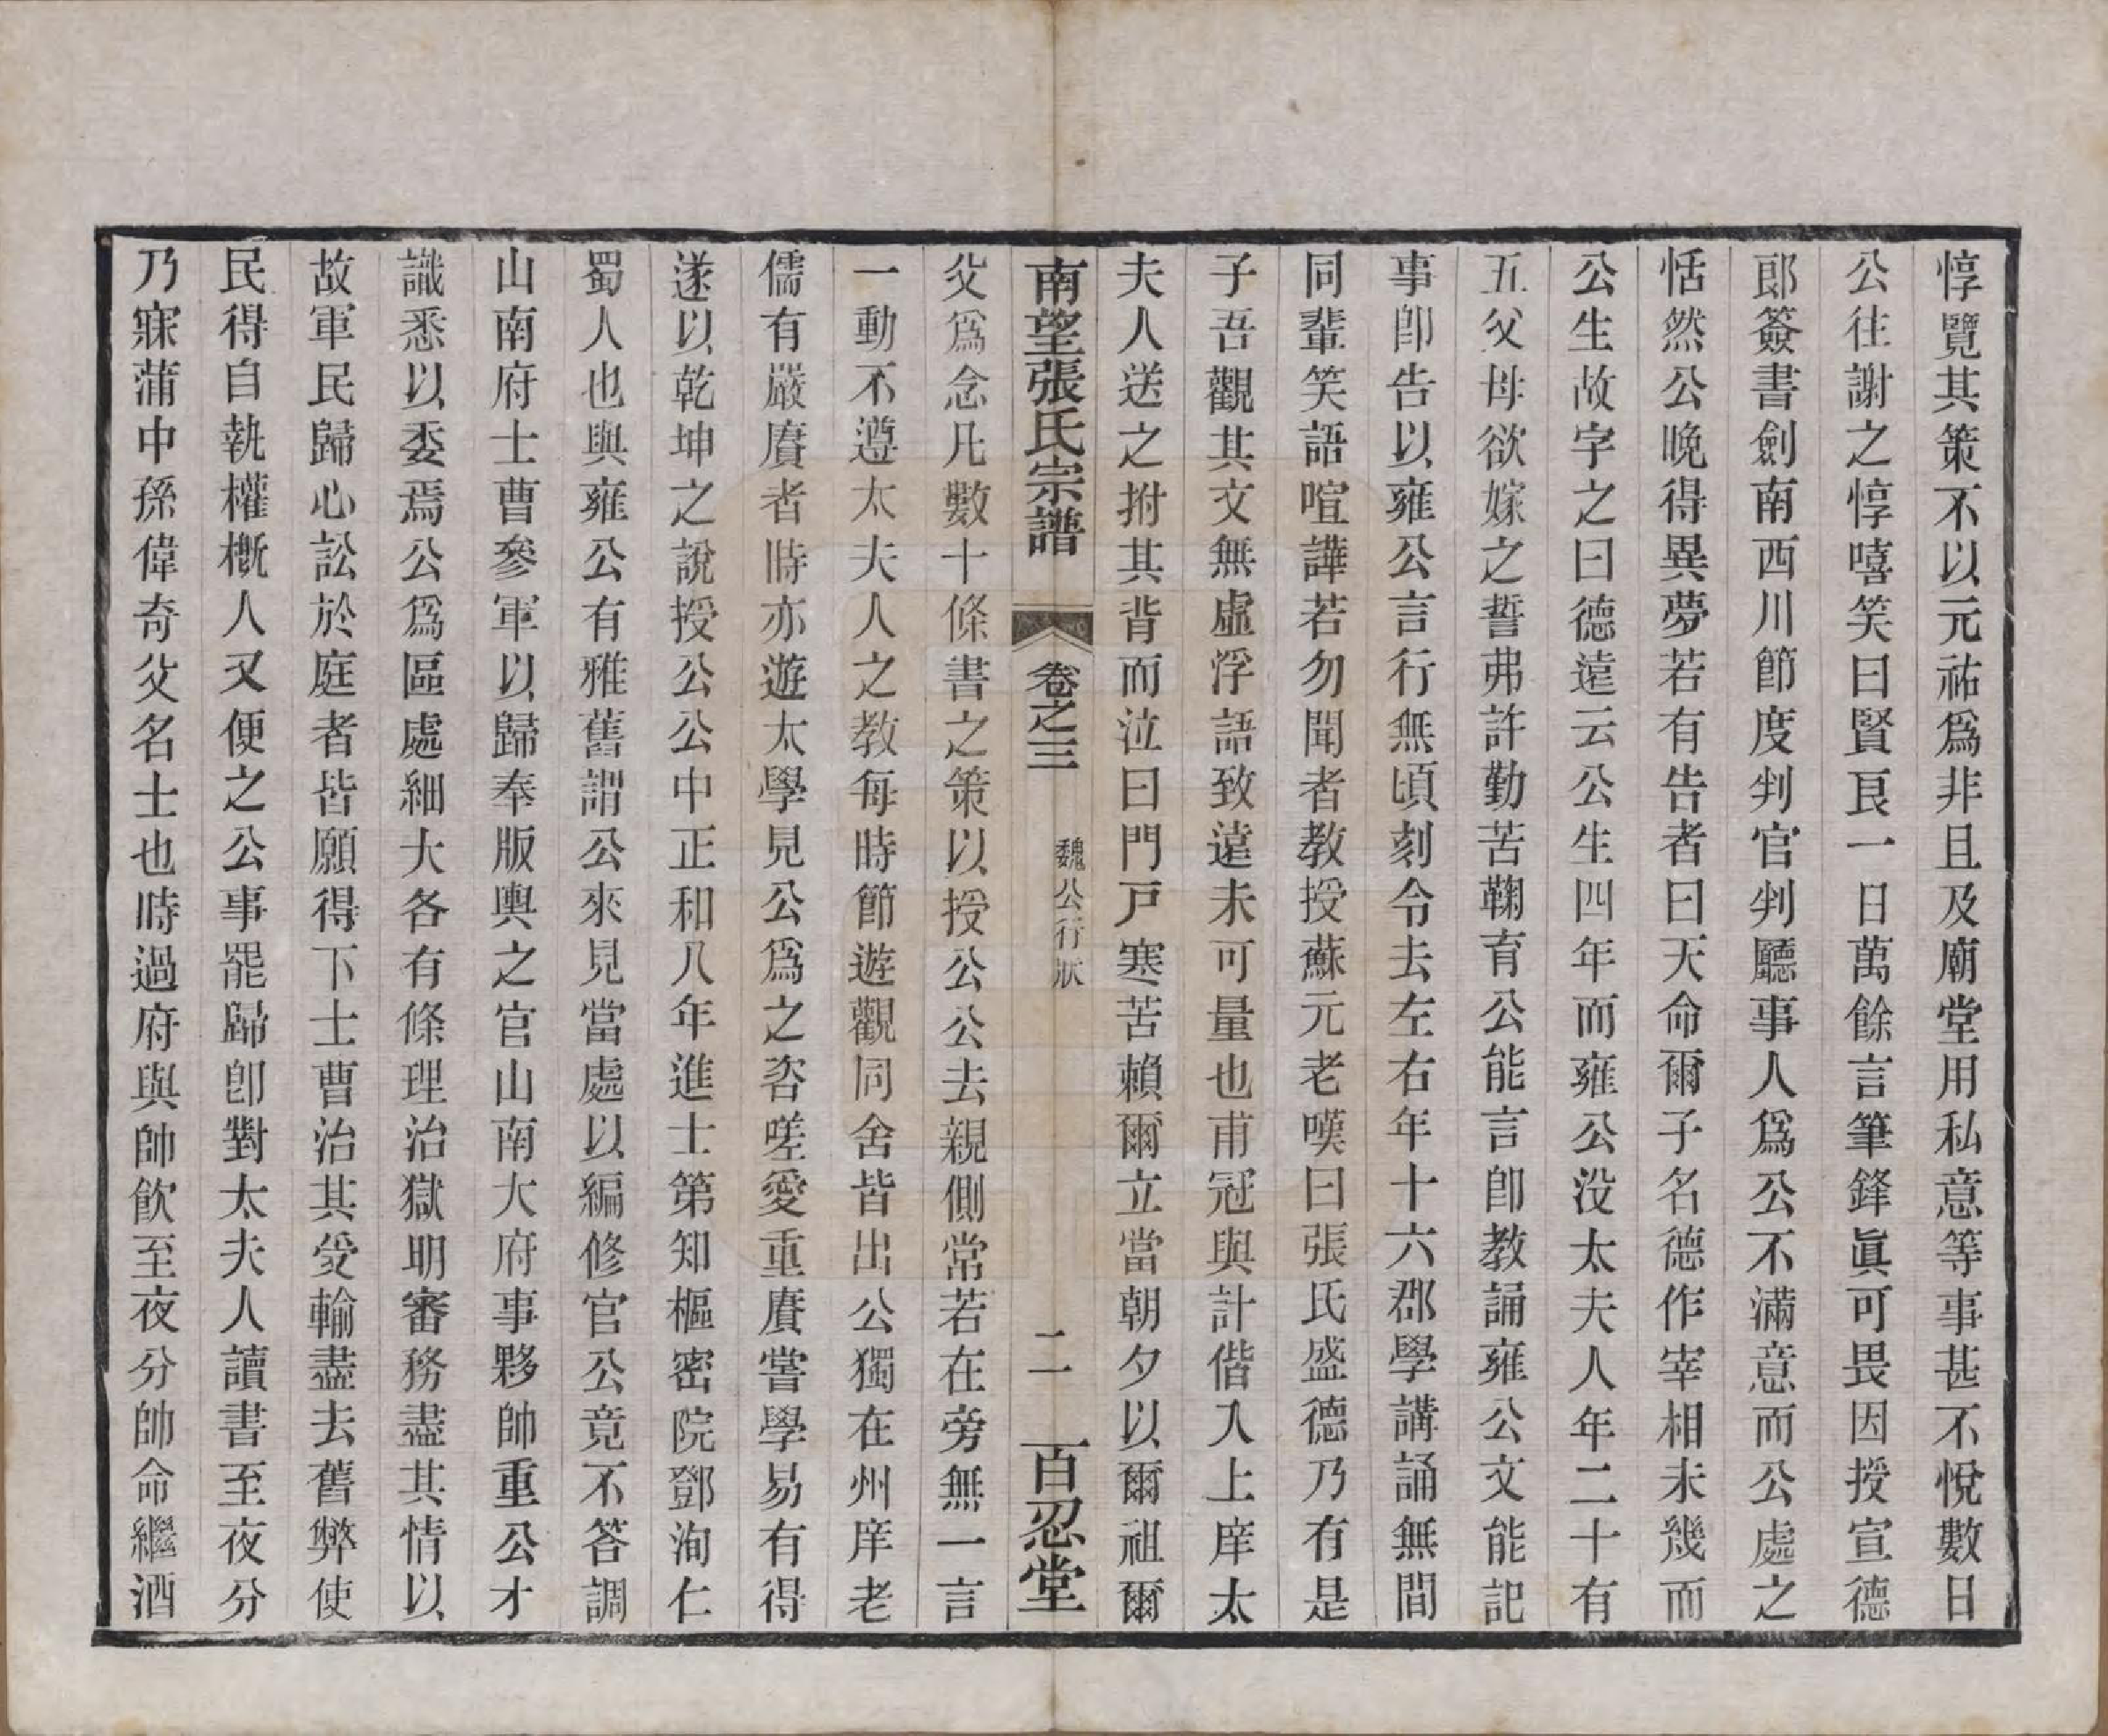 惇覽其策不以元祐爲非且及廟堂用私意等事甚不悅數日
公往謝之惇嘻笑曰賢良一日萬餘言筆鋒眞可畏因授宣德
郎簽書劍南西川節度判官判廳事人爲公不滿意而公處之
恬然公晚得異夢若有告者曰天命爾子名德作宰相未幾而
公生故字之曰德遠云公生四年而雍公没太夫人年二十有
五父母欲嫁之誓弗許勤苦鞠育公能言卽教誦雍公文能記
事卽告以雍公言行無頃刻令去左右年十六郡學講誦無間
同輩笑語喧譁若勿聞者教授蘇元老嘆曰張氏盛德乃有是
子吾觀其文無虛浮語致遠未可量也甫冠與計偕入上庠太
夫人送之拊其背而泣曰門戸寒苦賴爾立當朝夕以爾祖爾
南望張氏宗譜 卷之三 魏公行狀 二 百忍堂
父爲念凡數十條書之策以授公公去親側常若在旁無一言
一動不遵太夫人之教每時節遊觀同舍皆出公獨在州庠老
儒有嚴賡者時亦遊太學見公爲之咨嗟愛重賡嘗學易有得
遂以乾坤之說授公公中正和八年進士第知樞密院鄧洵仁
蜀人也與雍公有雅舊謂公來見當處以編修官公竟不答調
山南府士曹參軍以歸奉版輿之官山南大府事夥帥重公才
識悉以委焉公爲區處細大各有條理治獄明審務盡其情以
故軍民歸心訟於庭者皆願得下士曹治其受輸盡去舊弊使
民得自執權槪人又便之公事罷歸卽對太夫人讀書至夜分
乃寐蒲中孫偉奇父名士也時過府與帥飮至夜分帥命繼酒